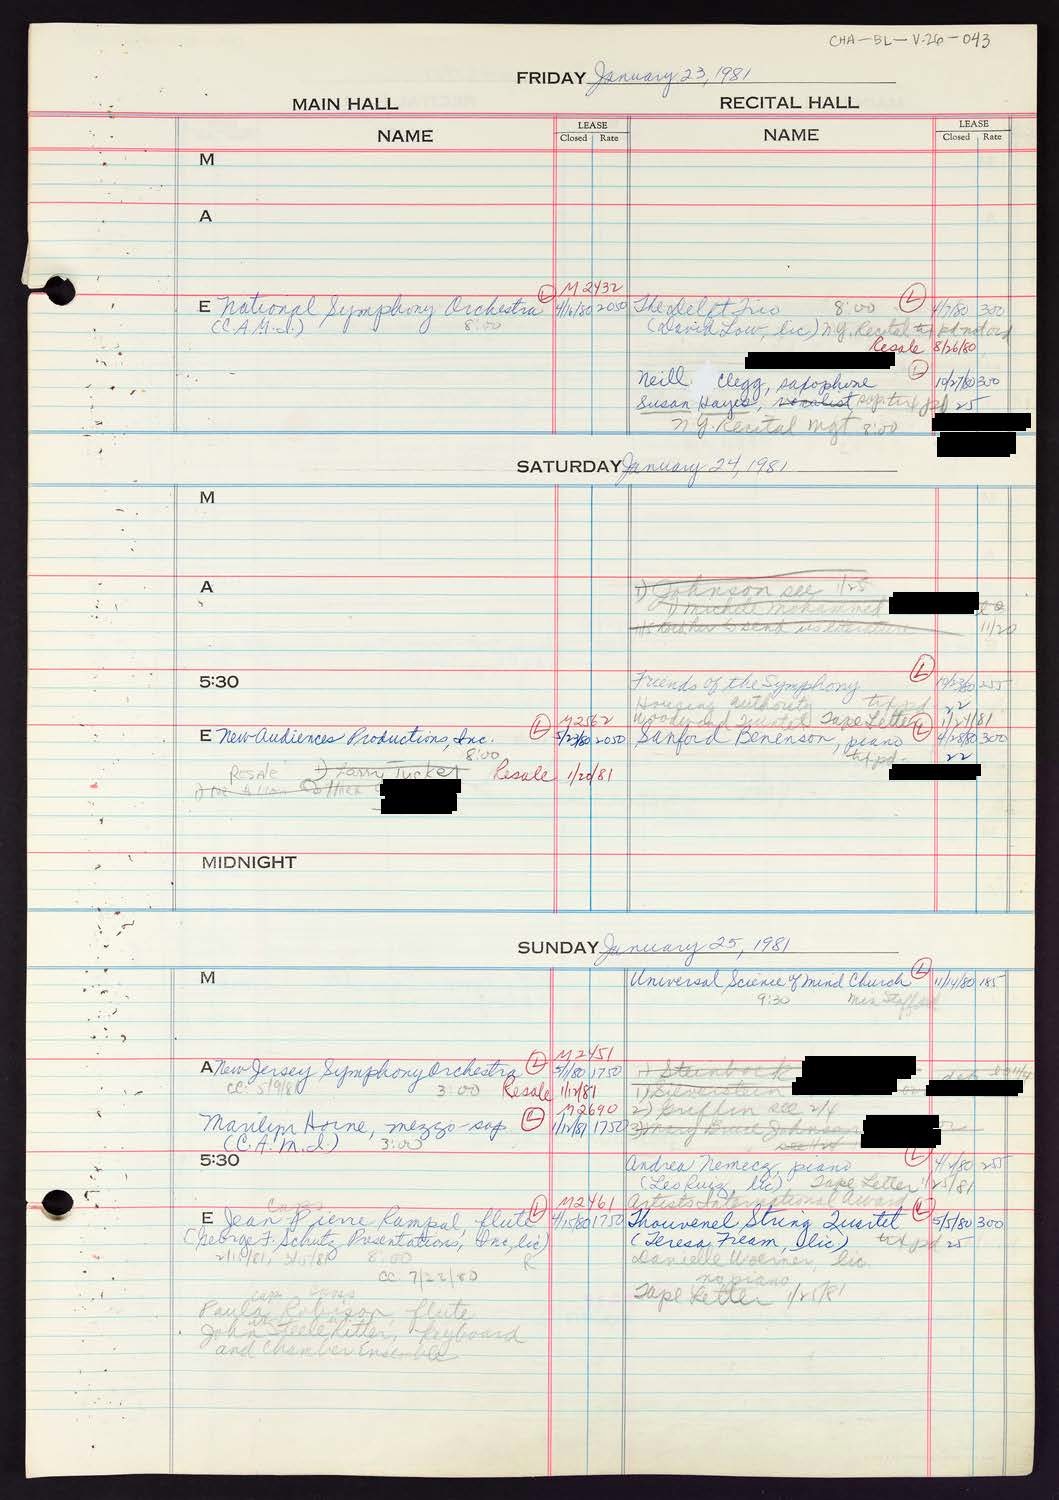 CHA-BL-V.26-043
FRIDAY January 23, 1981
MAIN HALL RECITAL HALL
NAME LEASE Closed Rate NAME LEASE Closed Rate
M
A
M2432
E National Symphony Orchestra L 4/16/80 2050
(C.A.M.I.) 8:00
The Delft Trio 8:00 L 4/7/80 300
(David Low, lic) N.Y. Recital
Resale 8/26/80
Neill Clegg, saxophone L 10/27/80 300
Susan Hayes, vocalist, pd 25
N.Y. Recital Mgt 8:00
SATURDAY January 24, 1981
M
A
1) Johnson see 1/25
11/20
5:30
Friends of the Symphony L 10/23/80 255
Housing authority pd 22
Woodwind Quintet Tape Letter 1/24/81
M2562
E New Audiences Productions, Inc. L 5/23/80 2050
8:00
Resale 1) Larry Tucker Resale 1/20/81
Sanford Benenson, piano L 4/28/80 300
pd 22
MIDNIGHT
SUNDAY January 25, 1981
M
Universal Science of Mind Church L 11/14/80 185
9:30
M2451
A New Jersey Symphony Orchestra L 5/1/80 1750
CC. 5/9/80 3:00 Resale 1/12/81
M2690
Marilyn Horne, mezzo-sop L 1/12/81 1750
(C.A.M.I.) 3:00
1) Steinbock
1) Silverstein
2) Griffin see 2/4
3) Mary Bruce Johnson
5:30
Andrea Nemecz, piano L 4/2/80 255
(Leo Ruiz, lic) Tape Letter 1/25/81
Artists International Award
M2461
E Jean Pierre Rampal, flute L 4/15/80 1750
(George F. Schutz Presentations, Inc, lic)
8:00
CC 7/22/80
Paula Robison, flute
John Steele Ritter, keyboard
and Chamber Ensemble
Thouvenel String Quartet L 5/5/80 300
(Teresa Fream, lic) pd 25
Danielle Woerner, lic.
no piano
Tape Letter 1/25/81